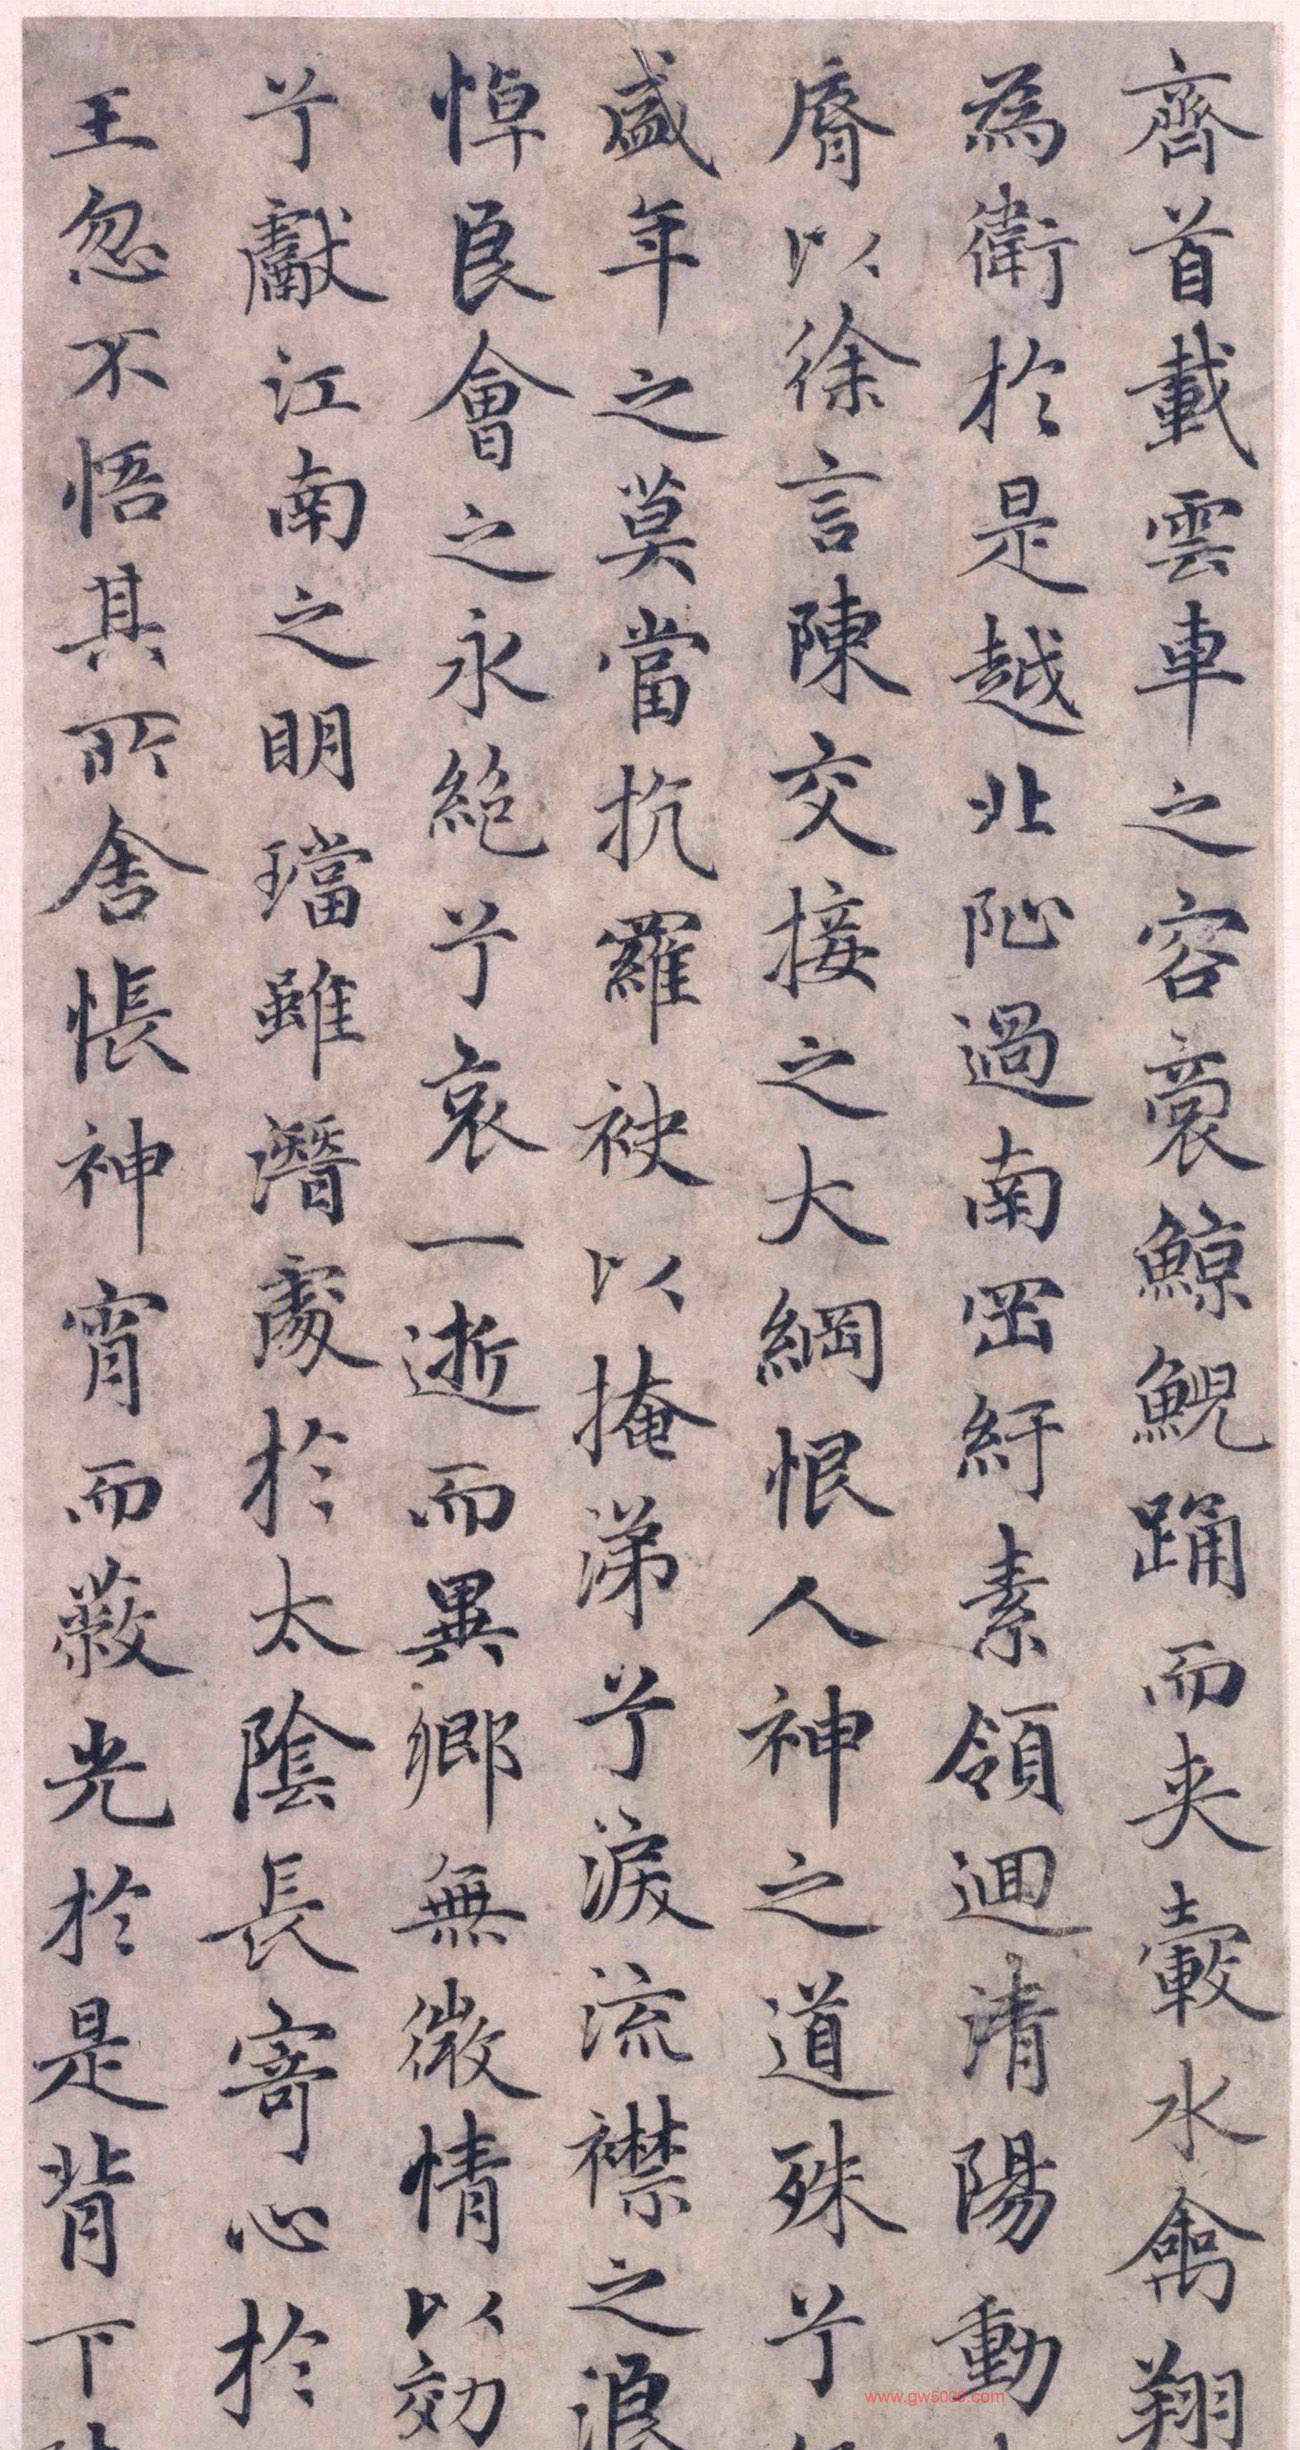 齊首載雲車之容裔鯨鯢踊而夾轂水禽翔
為衛於是越北沚過南岡紆素領迴清陽動
脣以徐言陳交接之大綱恨人神之道殊兮
盛年之莫當抗羅袂以掩涕兮淚流襟之浪
悼良會之永絕兮哀一逝而異鄉無微情以效
兮獻江南之明璫雖潛處於太陰長寄心於
王忽不悟其所舍悵神宵而蔽光於是背下
www.gw5000.com